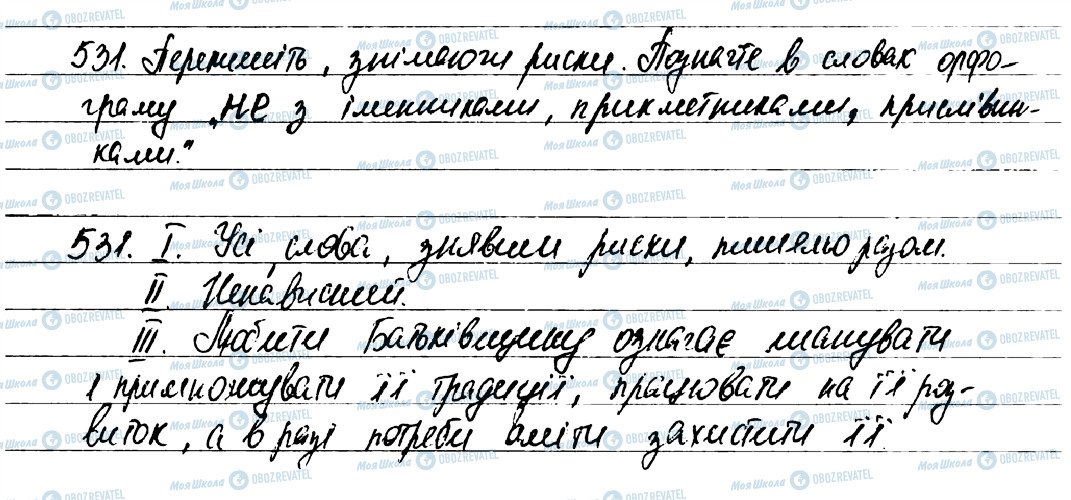 531. Перепишіть, знімаючи риски. Позначте в словах орфо-
граму „НЕ з іменниками, прикметниками, прислівни-
ками."
531. I. Усі слова, знявши риски, пишемо разом.
II. Ненависний.
III. Любити Батьківщину означає шанувати
і примножувати її традиції, працювати на її роз-
виток, а в разі потреби вміти захистити її.